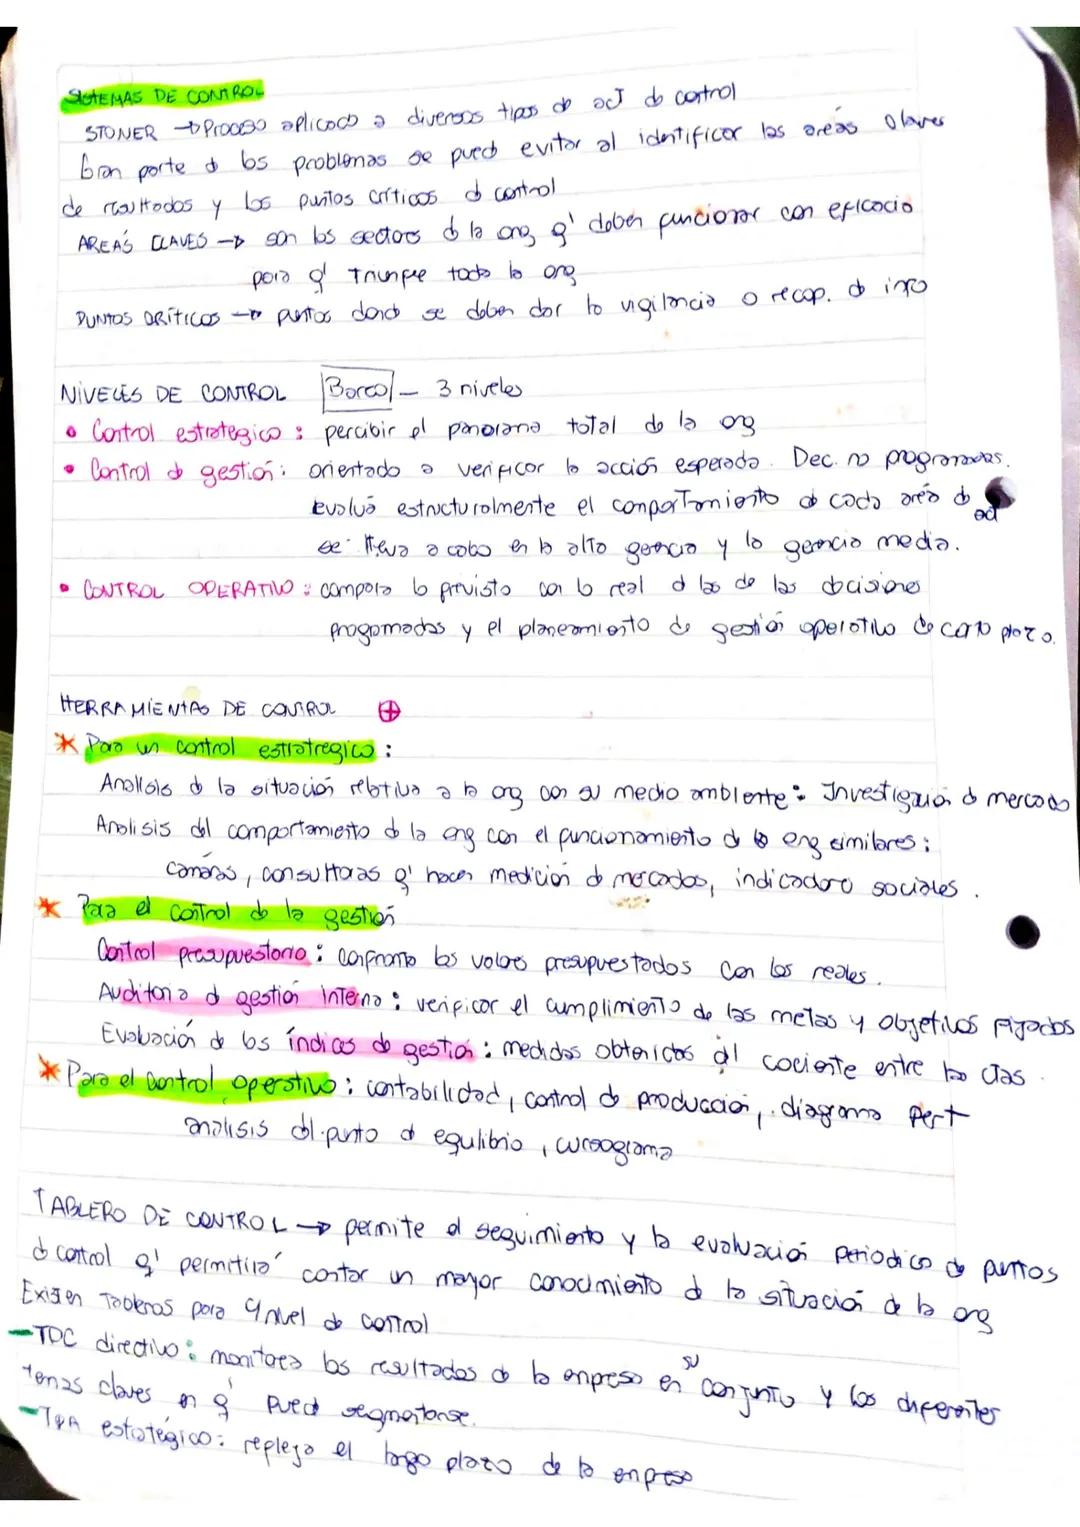 SISTEMAS DE CONTROL
STONER → Proceso aplicado a diversos tipos de act d control
Gran parte d los problemas se pued evitar al identificar las areas claves
de resultados y los puntos críticos d control
AREA'S CLAVES → son los sectors d la org q' deben funcionar con eficacia
para q' triunfe toda la org
PUNTOS CRÍTICOS → puntos dond se deben dar la vigilancia o recop. d info
NIVELES DE CONTROL Barco - 3 niveles
• Control estrategico : percibir el panorama total de la org
• Control d gestión : orientado a verificar la acción esperada. Dec. no programadas.
Evalua estructuralmente el comportamiento d cada area d act
se lleva a cabo en la alta gerencia y la gerencia media.
• CONTROL OPERATIVO : compara lo previsto con lo real d las de las decisiones
programadas y el planeamiento de gestión operativo de corto plazo.
HERRAMIENTAS DE CONTROL ⊕
* Para un control estratregico :
Analisis d la situación relativa a la org con su medio ambiente : Investigación d mercado
Analisis del comportamiento d la org con el funcionamiento d la org similares :
camaras, consultoras q' hacen medición d mercados, indicadoro sociales .
* Para el control de la gestión
Control presupuestorio : confronta los valores presupuestados con los reales.
Auditoria d gestión interna : verificar el cumplimiento de las metas y objetivos fijados
Evaluación de los índices de gestión : medidas obtenidas dl cociente entre las ctas .
* Para el control operativo : contabilidad, control d producción, diagrama Pert
análisis dl punto d equlibrio, cursograma
TABLERO DE CONTROL → permite el seguimiento y la evaluación periodica de puntos
d control q' permitira' contar un mayor conocimiento d la situación de la org
Existen Tableros para 4 nivel de control
- TDC directivo : monitorea los resultados d la empresa en su conjunto y los diferentes
temas claves en q' pued segmentarse.
estratégico : refleja el largo plazo de la empresa